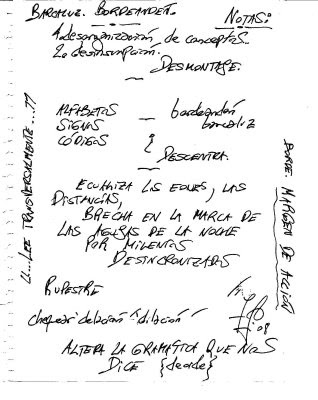 BARCALIZ. BORDEANDEN.
NOTAS:
1. desorganización, de conceptos.
2. desinscripción.
DESMONTAGE.
ALFABETOS — bordeandén
SIGNOS barcaliz
CÓDIGOS
DESCENTRA.
ECUALIZA LOS EONES, LAS
DISTANCIAS,
BRECHA EN LA MARCA DE
LAS AGUJAS DE LA NOCHE
POR MILENIOS
DESINCRONIZADOS
RUPESTRE
delación "dilación"
08
ALTERA LA GRAMATICA QUE NOS
DICE {desde}
LL...LEE TRANSVERSALMENTE...??
BORDE. MARGEN DE ACCIÓN